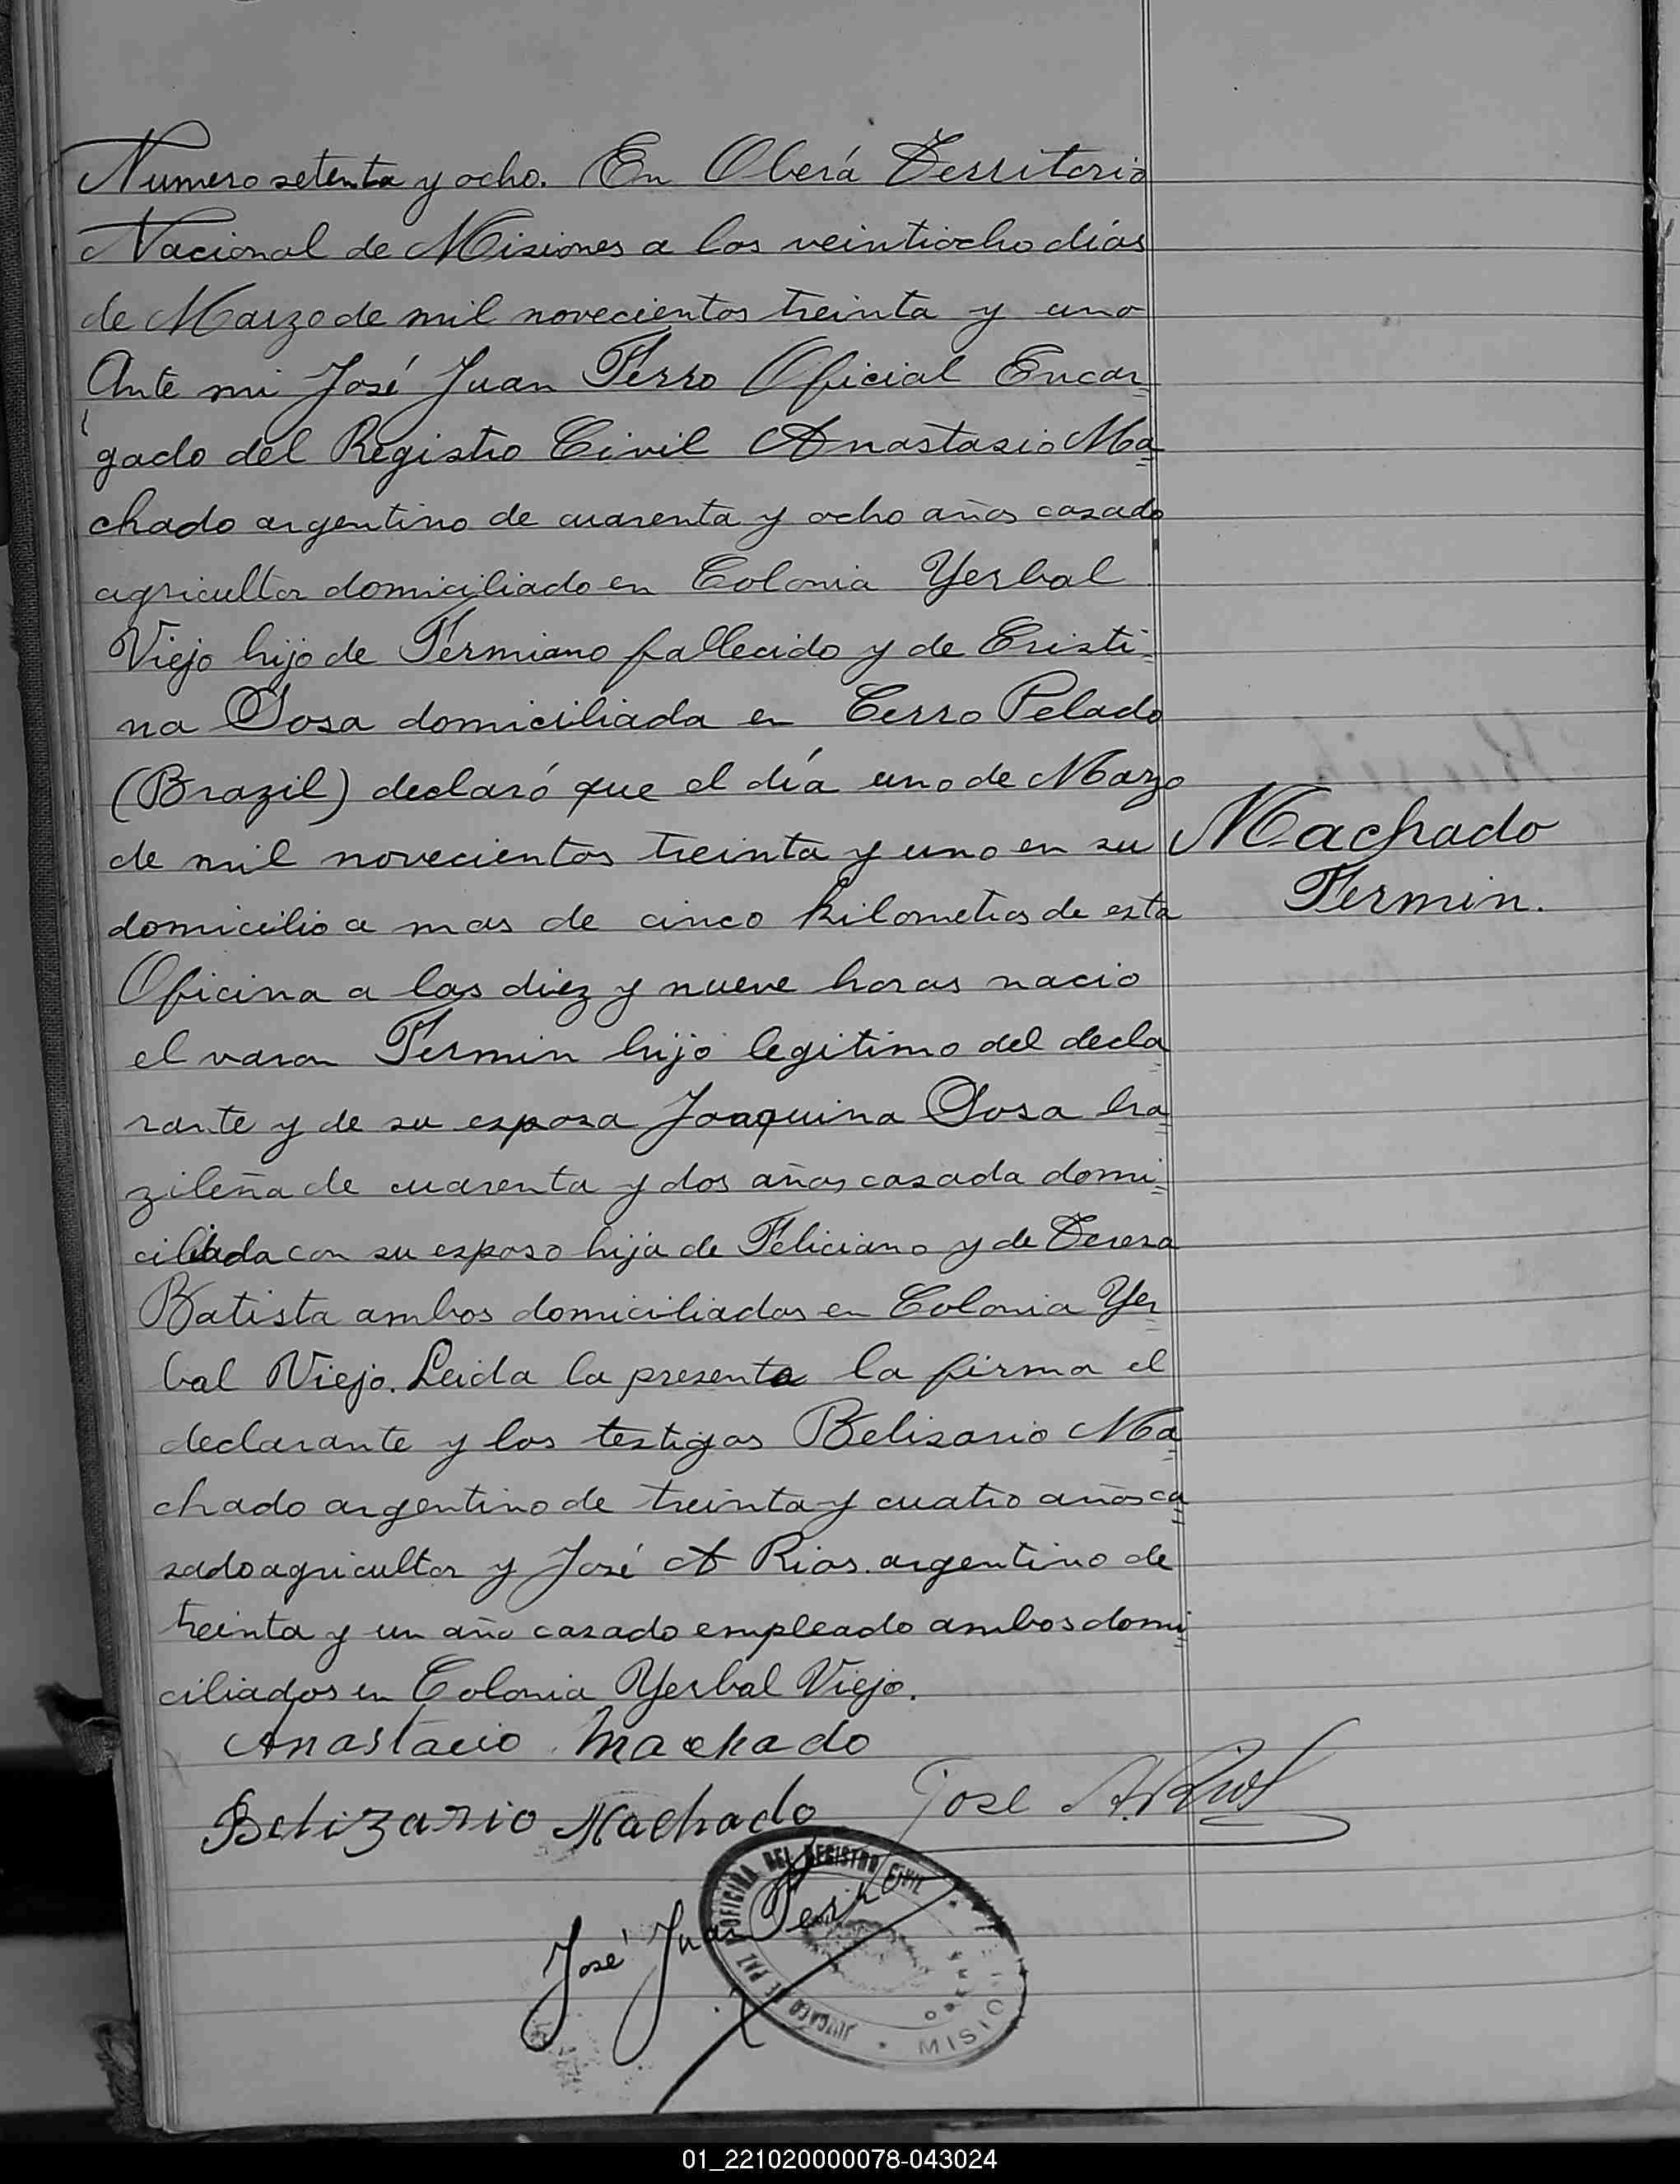 Numero setenta y ocho. En Oberá Territorio
Nacional de Misiones a los veintiocho días
de Marzo de mil novecientos treinta y uno
Ante mi José Juan Ferro Oficial Encar-
gado del Registro Civil Anastasio Ma=
chado argentino de cuarenta y ocho años casado
agricultor domiciliado en Colonia Yerbal
Viejo hijo de Fermiano fallecido y de Cristi=
na Sosa domiciliada en Cerro Pelado
(Brazil) declaró que el día uno de Marzo
de mil novecientos treinta y uno en su
domicilio a mas de cinco kilometros de esta
Oficina a las diez y nueve horas nacio
el varon Fermin hijo legitimo del decla=
rante y de su esposa Joaquina Sosa bra=
zileña de cuarenta y dos años casada domi=
ciliada con su esposo hija de Feliciano y de Teresa
Batista ambos domiciliados en Colonia Yer=
bal Viejo. Leida la presente la firma el
declarante y los testigos Belisario Ma=
chado argentino de treinta y cuatro años ca=
sado agricultor y José A Rios argentino de
treinta y un año casado empleado ambos domi=
ciliados en Colonia Yerbal Viejo.
Machado
Fermin.
Anastacio Machado
Belizario Machado
Jose A. Rios
José Juan Ferro
JUZGADO DE PAZ Y OFICINA DEL REGISTRO CIVIL
MISIONES
01_221020000078-043024